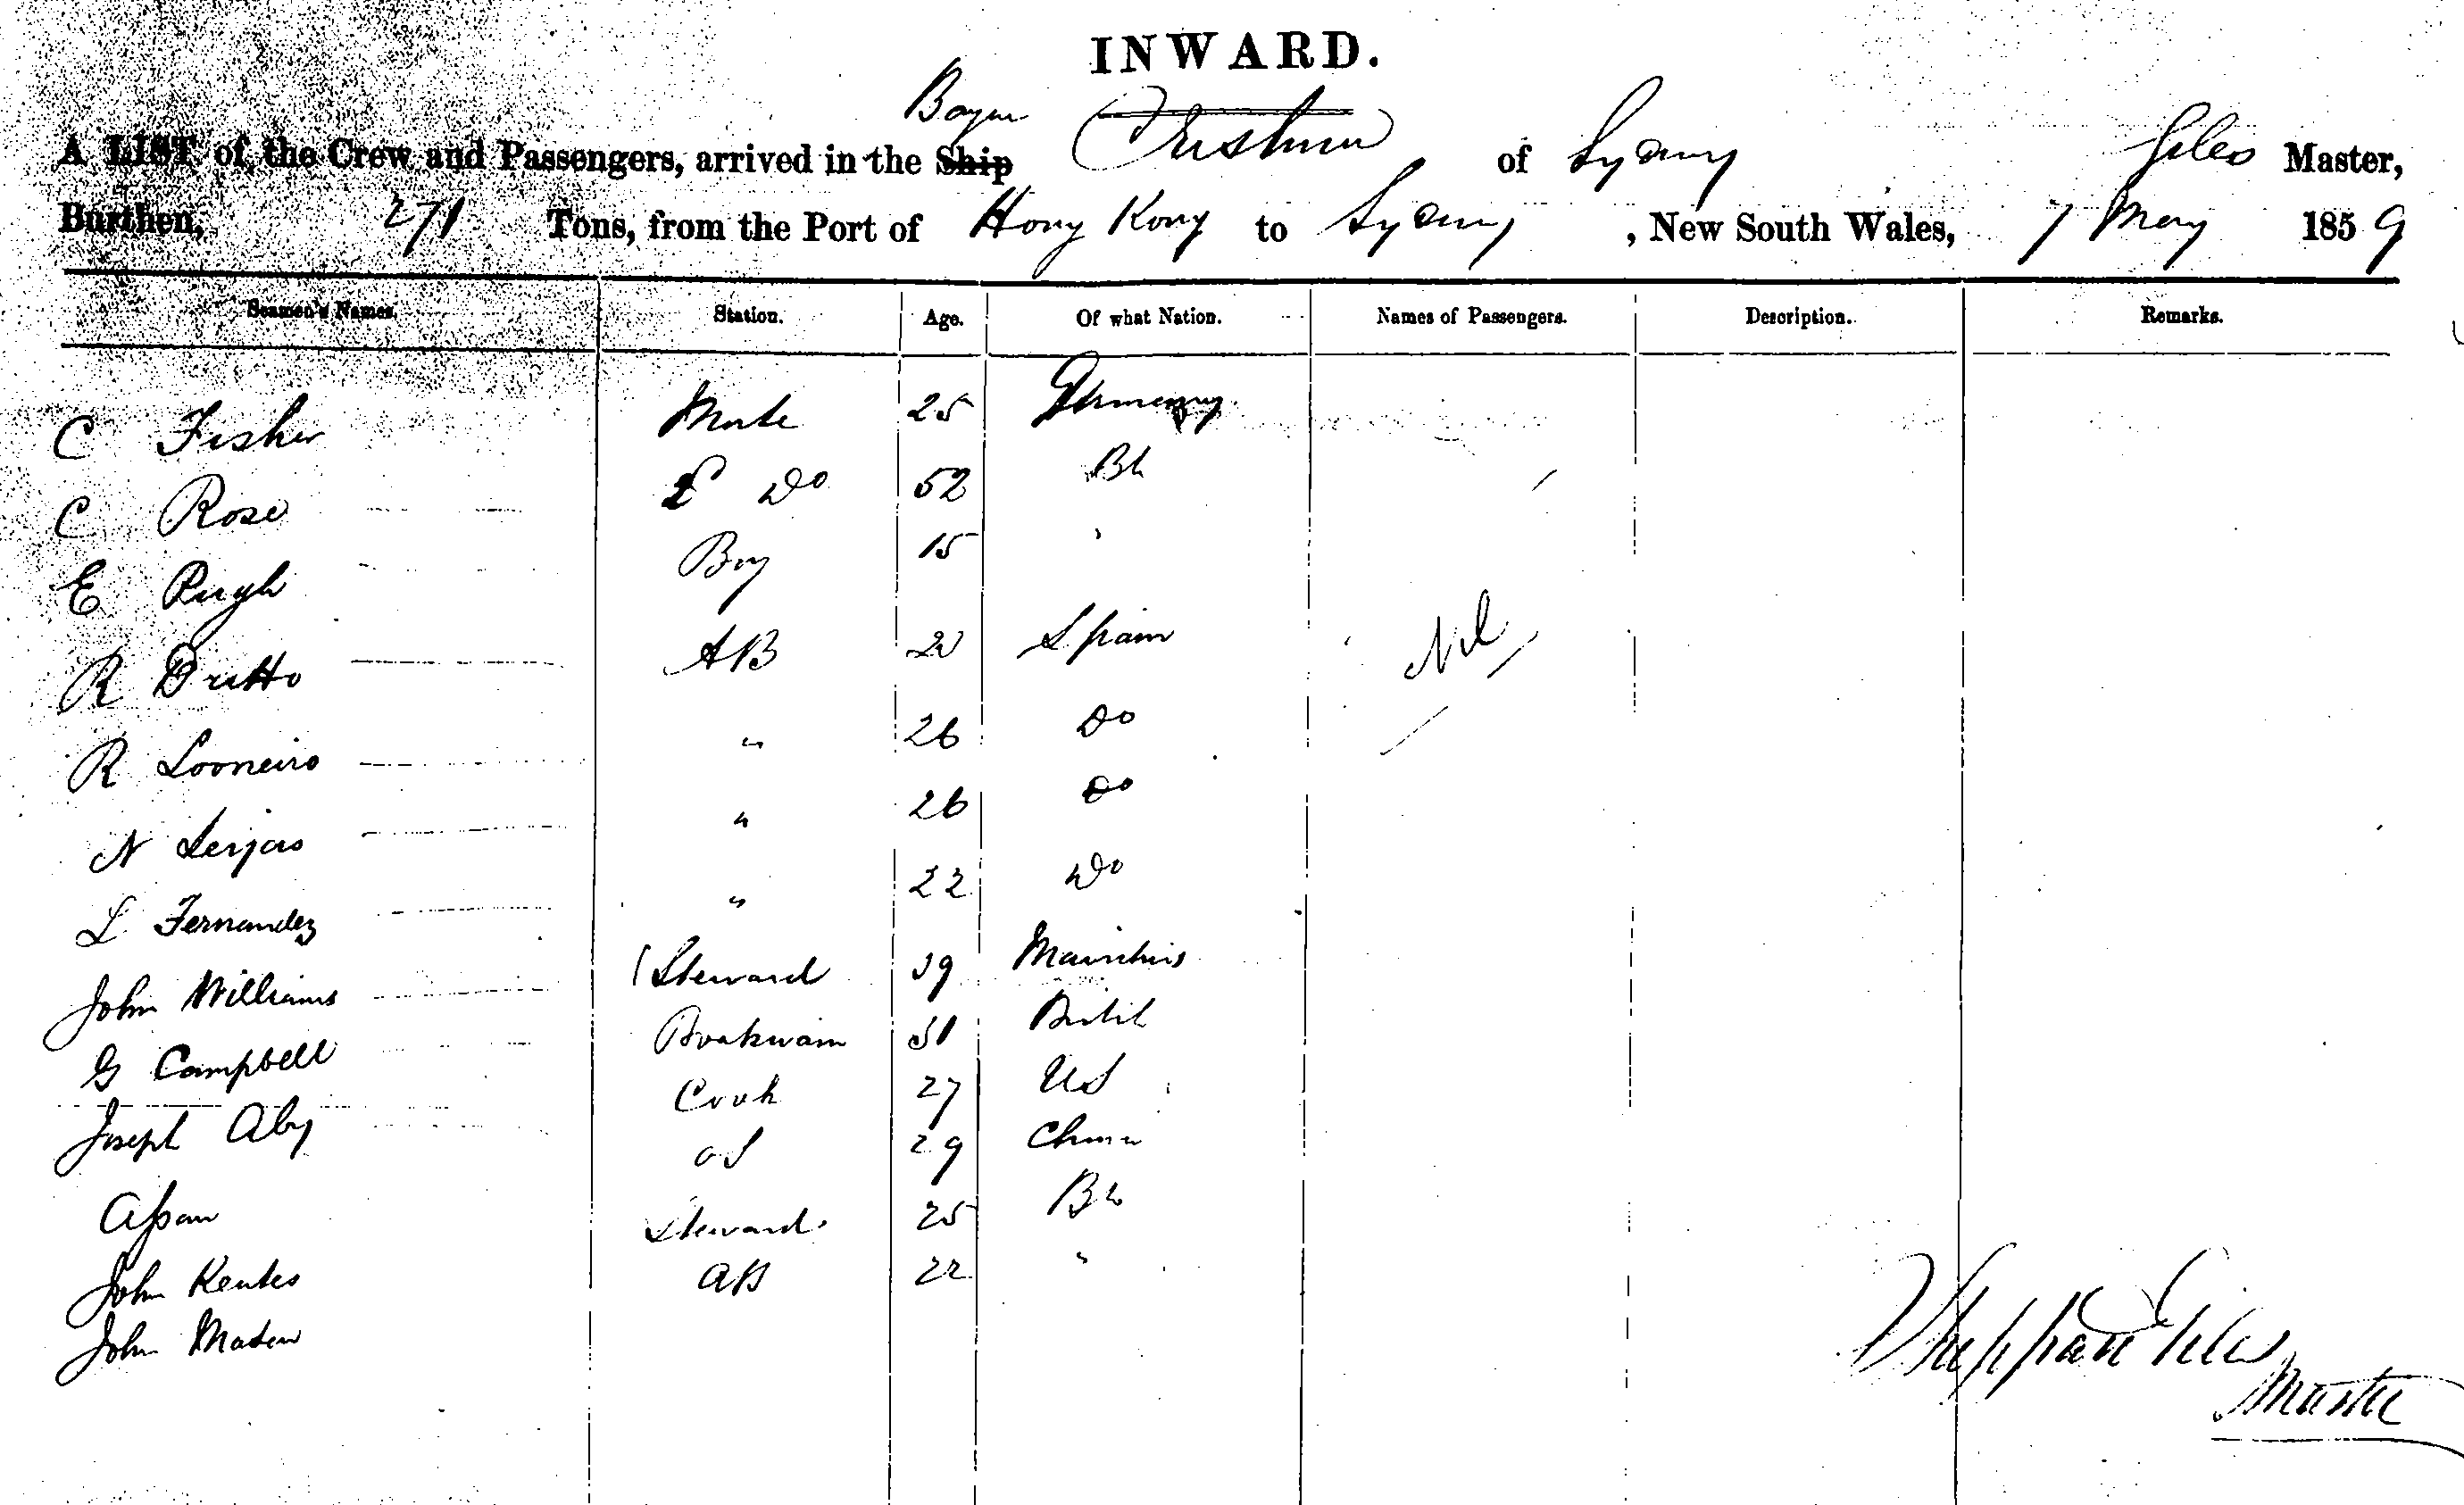 INWARD.
A LIST of the Crew and Passengers, arrived in the Ship of Sydney Giles Master,
Burthen, 271 Tons, from the Port of Hong Kong to Sydney, New South Wales, 7 May 1859
Seamen's Names. Station. Age. Of what Nation. Names of Passengers. Description. Remarks.
C Fisher Mate 25 Germany
C Rose 2 Do 52 Bh
E Pugh Boy 15 "
R Dutto AB 20 Spain Nil
R Looneiro " 26 Do
N Lerjas " 26 Do
L Fernandez " 22 Do
John Williams Steward 39 Mauritius
G Campbell Boatswain 31 British
Joseph Aby Cook 27 US
Assan OS 29 China
John Kentes Steward 25 Bh
John Maten AB 22 "
Giles
Master